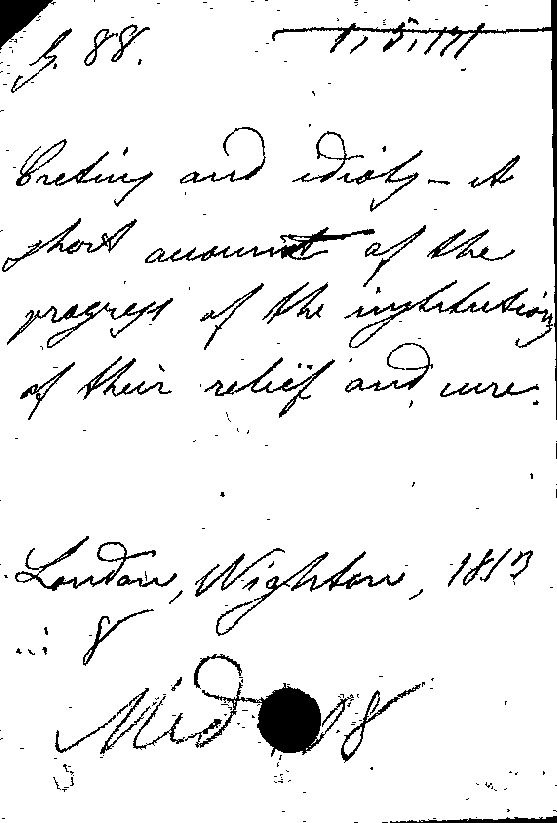 G. 88.
Cretins and idiots – A
short account of the
progress of the institutions
of their relief and cure.
London, Wighton, 1853
in 8
Med 8